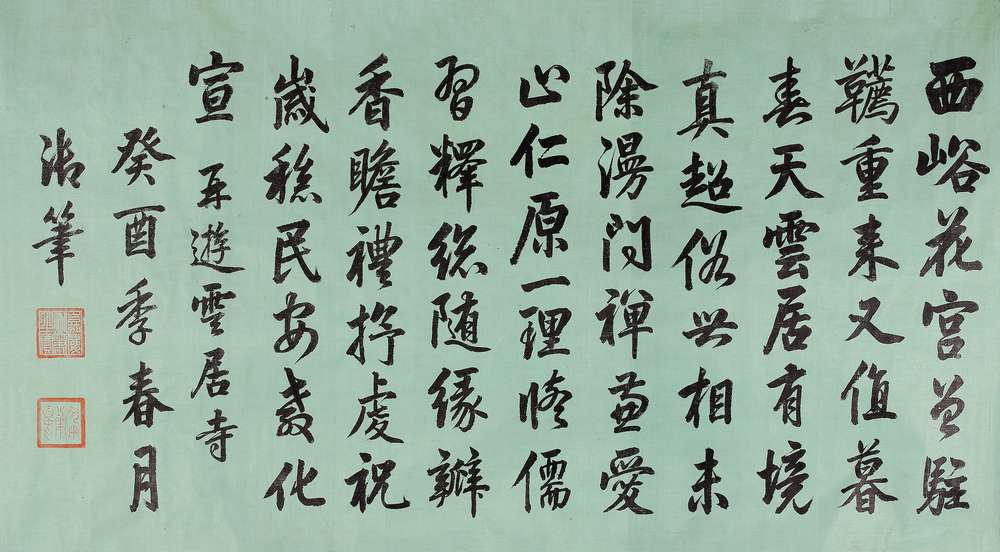 西峪花宮曾駐
韉重来又值暮
春天雲居有境
真超俗相未
除漫問禪兼愛
止仁原一理修儒
習釋總随緣瓣
香瞻禮抒虔祝
歲稔民安教化
宣 再遊雲居寺
癸酉季春月
御筆